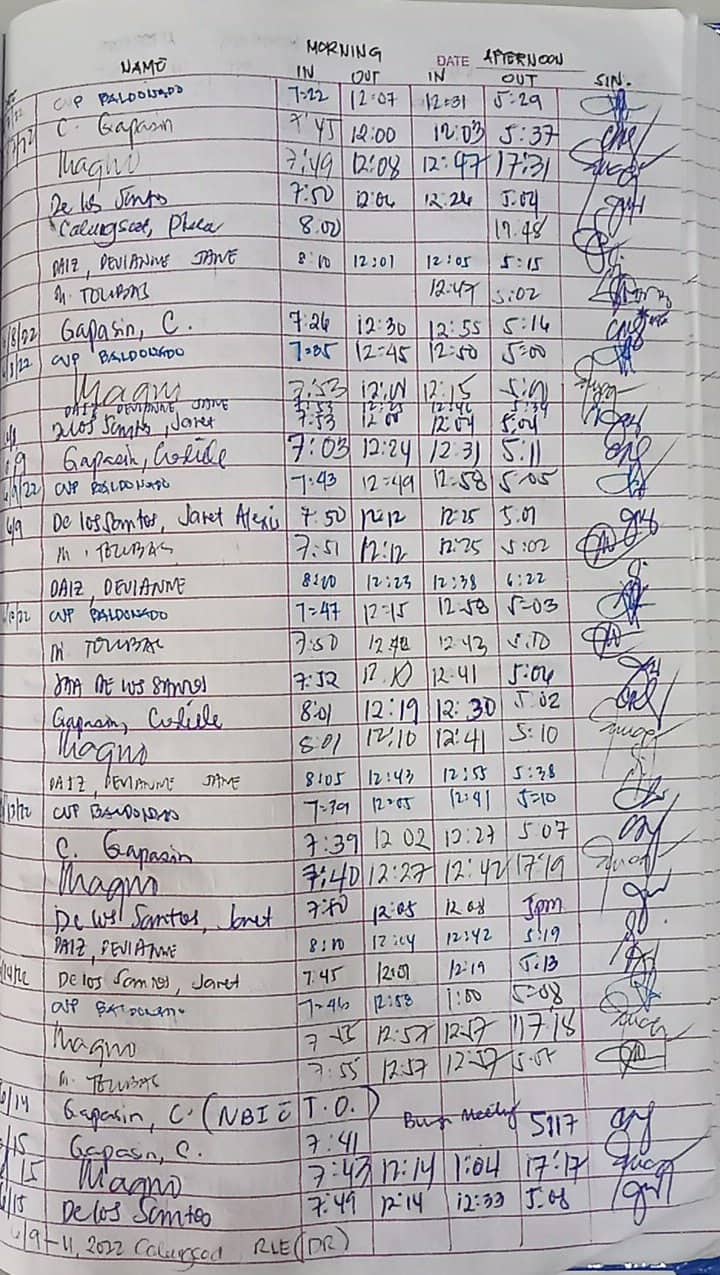 MORNING DATE AFTERNOON
NAME IN OUT IN OUT SIN.
CVP BALDONADO 7=22 12=07 12=31 5=29
C. Gapasin 7:45 12:00 12:03 5:37
Magno 7:49 12:08 12:47 17:31
De los Santos 7:50 12:06 12:26 5:04
Calungsod, 8:00 17:48
DAIZ, DEVIANNE JANE 8:10 12:01 12:05 5:15
M. TOLIBAS 12:47 5:02
6/8/22 Gapasin, C. 7:26 12:30 12:55 5:16
6/8/22 CVP BALDONADO 7=35 12=45 12=50 5=00
Magno 7:53 12:15
DAIZ DEVIANNE JANE
De los Santos, Jaret 7:53 12:04 5:04
6/9 Gapasin, Cristile 7:03 12:24 12:31 5:11
6/9/22 CVP BALDONADO 7=43 12=49 12=58 5=05
6/9 De los Santos, Jaret Alexis 7:50 12:12 12:25 5:01
M. TOLIBAS 7:51 12:12 12:25 5:02
DAIZ, DEVIANNE 8:00 12:23 12:38 6:22
CVP BALDONADO 7=47 12=15 12=58 5=03
M TOLIBAS 7:50 12:43 5:10
JAA DE LOS SANTOS 7:52 12:10 12:41 5:04
Gapasin, Cristile 8:01 12:19 12:30 5:02
Magno 8:01 12:10 12:41 5:10
DAIZ, DEVIANNE JANE 8:05 12:43 12:55 5:38
CVP BALDONADO 7=39 12=05 12=41 5=10
C. Gapasin 7:39 12 02 12:27 5:07
Magno 7:40 12:27 12:42 17:19
De los Santos, Jaret 7:50 12:05 12:08 5pm
DAIZ, DEVIANNE 8:10 12:04 12:42 5:19
De los Santos, Jaret 7:45 12:01 12:19 5:13
CVP BALDONADO 7=46 12:53 1:00 5=08
Magno 7 55 12:57 12:57 17:18
M. TOLIBAS 7:55 12:57 12:57
6/14 Gapasin, C. (NBI c̄ T.O.) Meeting 5:17
6/15 Gapasin, C. 7:41
6/15 Magno 7:43 12:14 1:04 17:17
6/15 De los Santos 7:49 12:14 12:33 5:08
6/9-11, 2022 Calungsod RLE (DR)